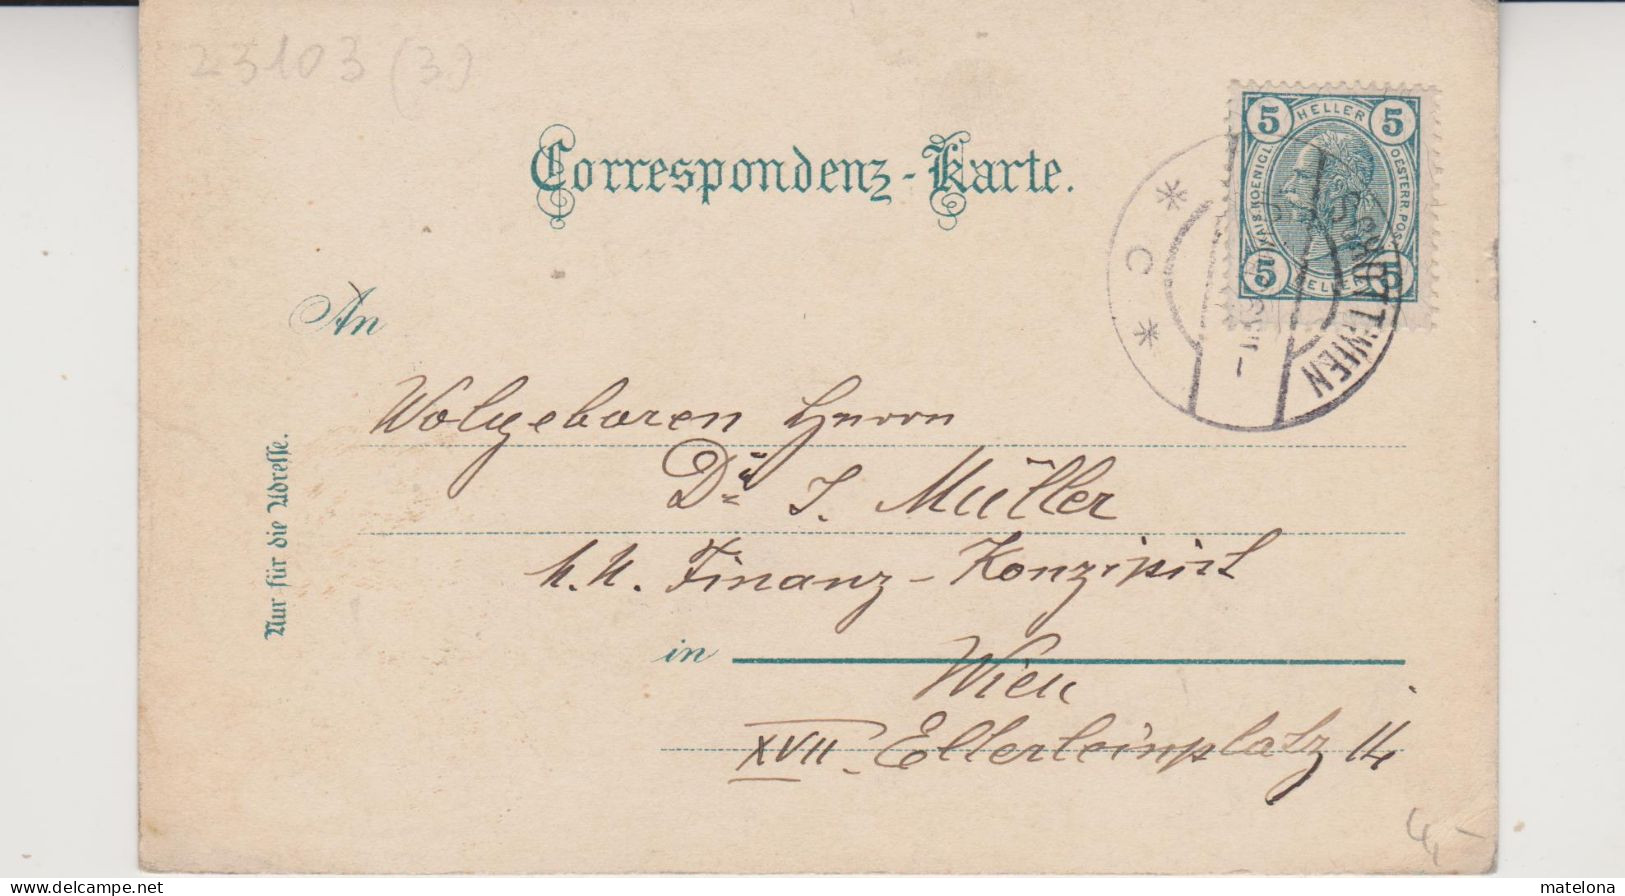 23103 (3)
Correspondenz-Karte.
5 HELLER 5
KAIS. KOENIGL. OESTERR. POST
5 HELLER 5
* C *
WIEN
An
Wolgeboren Herrn
Dr. J. Müller
k. k. Finanz-Konzipist
in Wien
XVII. Elterleinplatz 14
Nur für die Adresse.
4,-
matelona